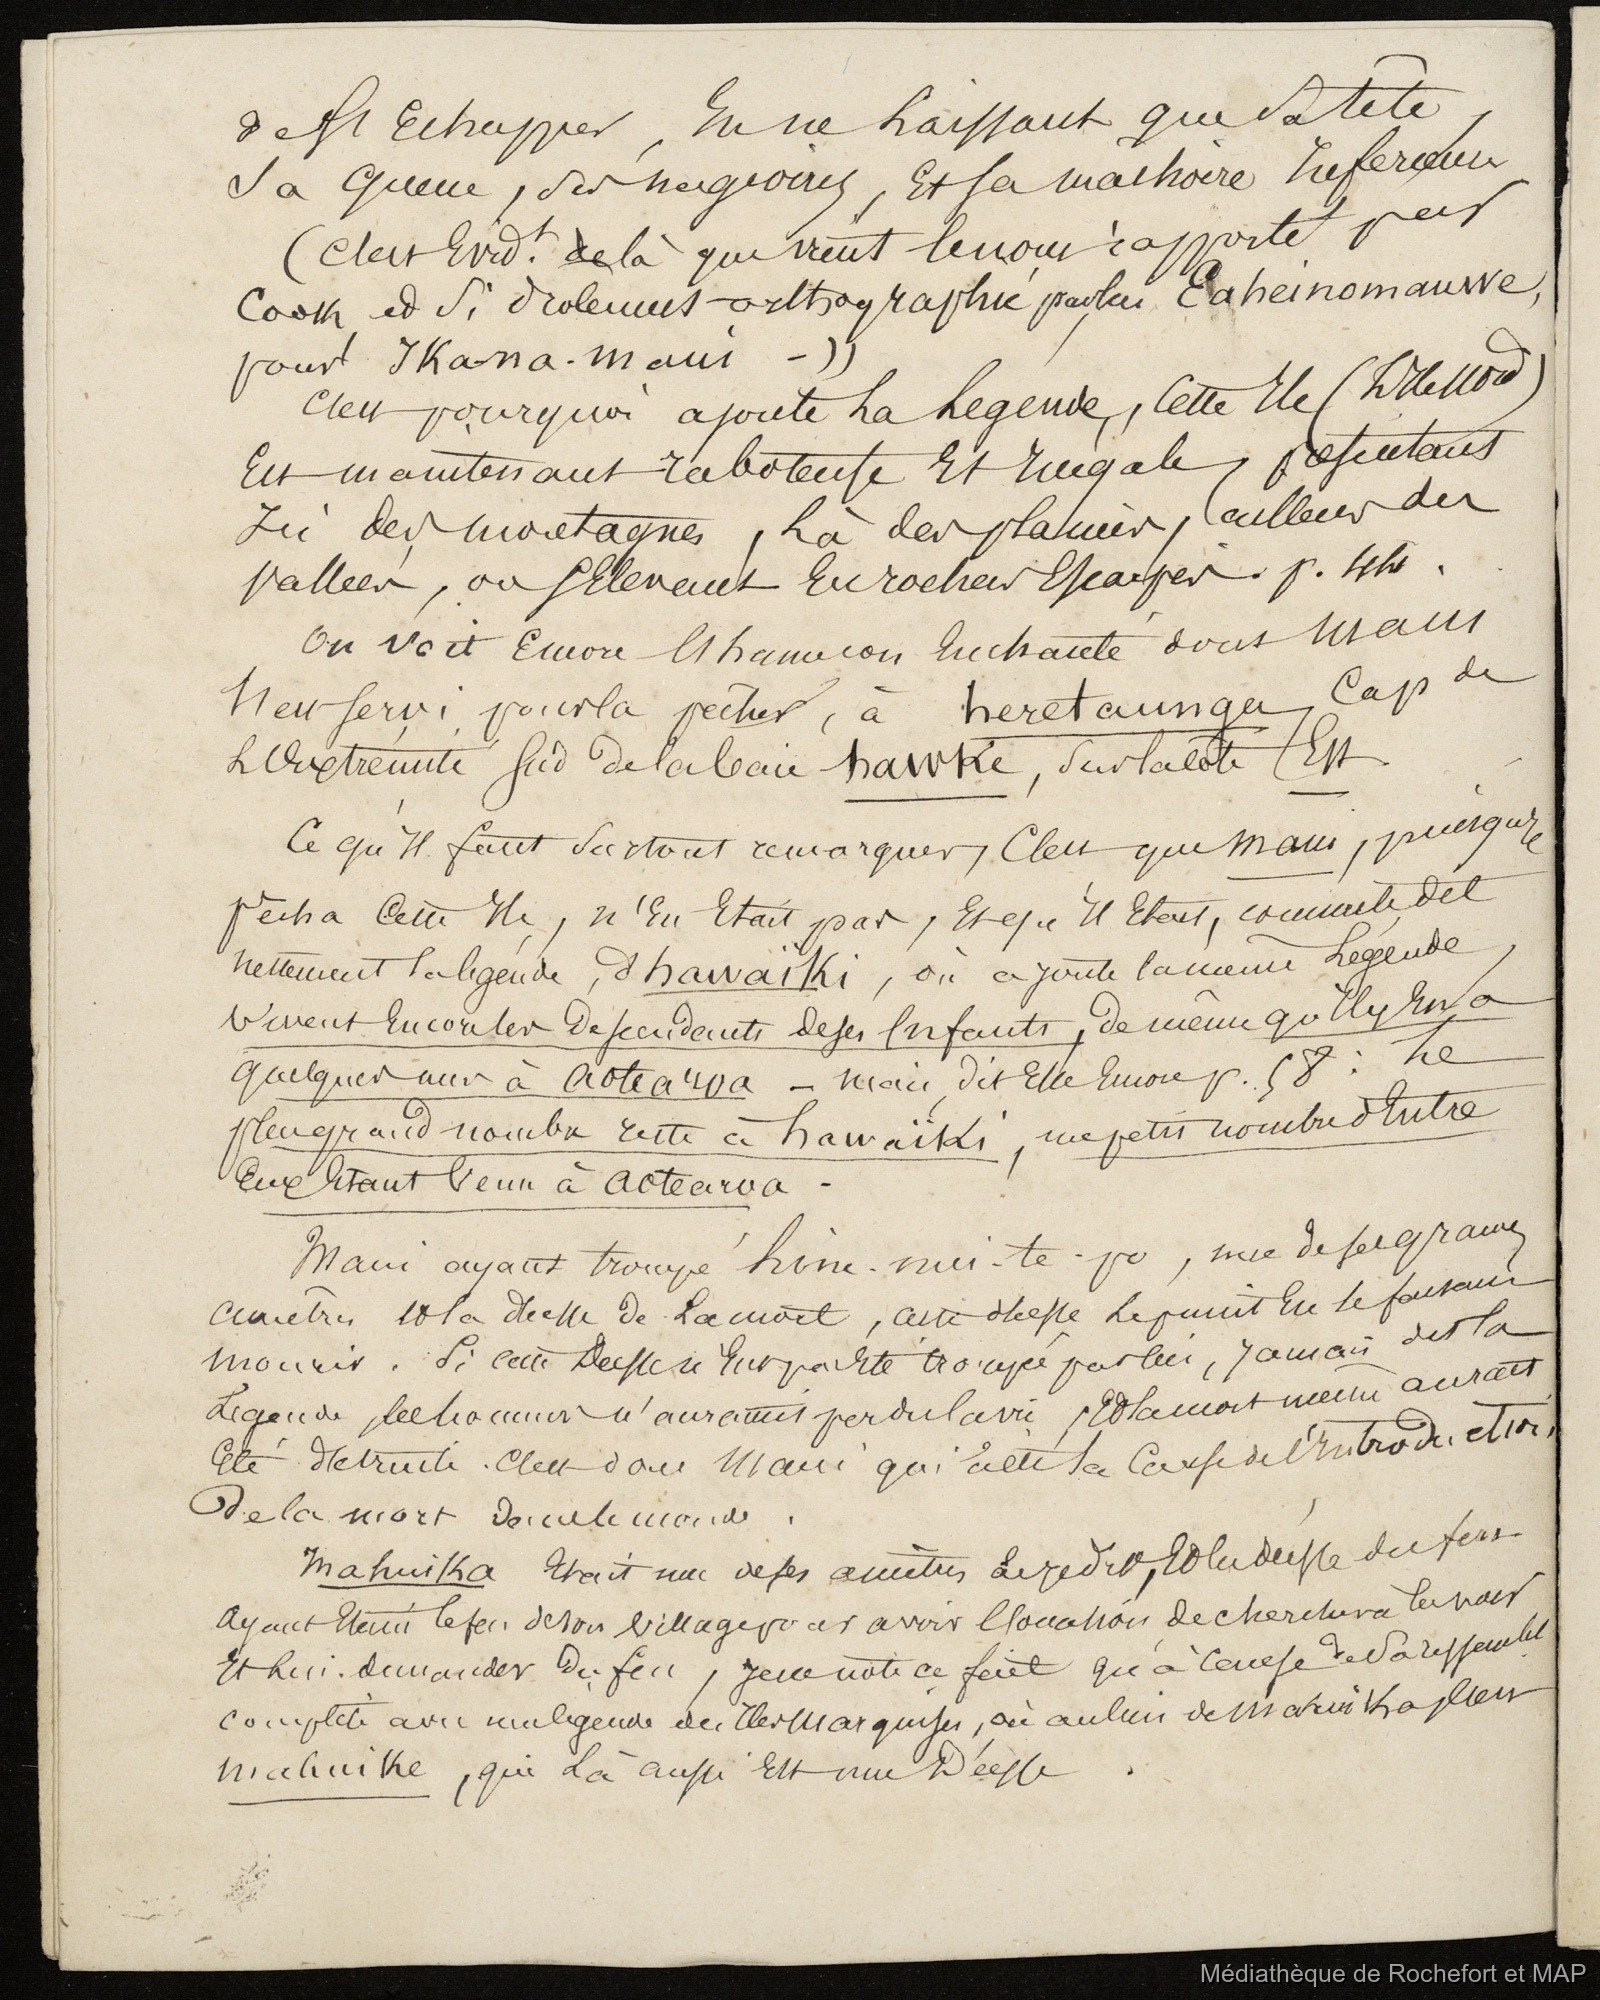 Echapper, En ne Laissant que Sa tête,
Sa Queue, Ses nageoires, Et sa machoire Inférieure
(C'est Evid.t de là que vient le nom rapporté par
Cook et si drolement orthographié par lui Eaheinomauwe,
pour Ika-na-Maui -))
C'est pourquoi ajoute La Légende, Cette Ile (L'Ile Nord)
Est maintenant raboteuse Et Inégale, présentant
Ici des montagnes, Là des plaines, ailleurs des
Vallées, ou s'Elevant En rochers Escarpés. p. 44.
On voit Encore l'hameçon Enchanté dont Maui
s'est servi pour la pêcher, à heretaunga, Cap de
L'Extrémité Sud de la baie hawke, sur la côte Est.
Ce qu'Il faut surtout remarquer, C'est que Maui, puisqu'Il
pêcha Cette Ile, n'En Etait pas, Et qu'Il Etait, comme le dit
nettement la légende, d'hawaïki, où ajoute la même Légende,
Vivent Encore les Descendants de ses Enfants, de même qu'Il y En a
quelques uns à Aotearoa - mais, dit Elle Encore p. 58 : Le
plus grand nombre reste à hawaïki, un petit nombre d'Entre
Eux Etant Venu à Aotearoa -
Maui ayant trompé hine-nui-te-po, une de ses grands
ancêtres et la déesse de La mort, cette déesse Le punit En le faisant
mourir. Si cette Déesse n'Eut pas Eté trompée par lui, jamais dit la
Légende, les hommes n'auraient perdu la vie, Et la mort même aurait
Eté détruite. C'est donc Maui qui a été la Cause de l'Introduction
De la mort dans le monde.
Mahuika Etait une de ses ancêtres, Et la déesse du feu.
Ayant Eteint le feu de son Village pour avoir l'occasion de chercher à la voir
Et Lui demander Du feu, je ne note ce fait qu'à Cause de Sa ressembl.
complète avec une légende des Iles Marquises, où au lieu de Mahuika, C'est
mahuike, qui Là aussi Est une Déesse.
Médiathèque de Rochefort et MAP